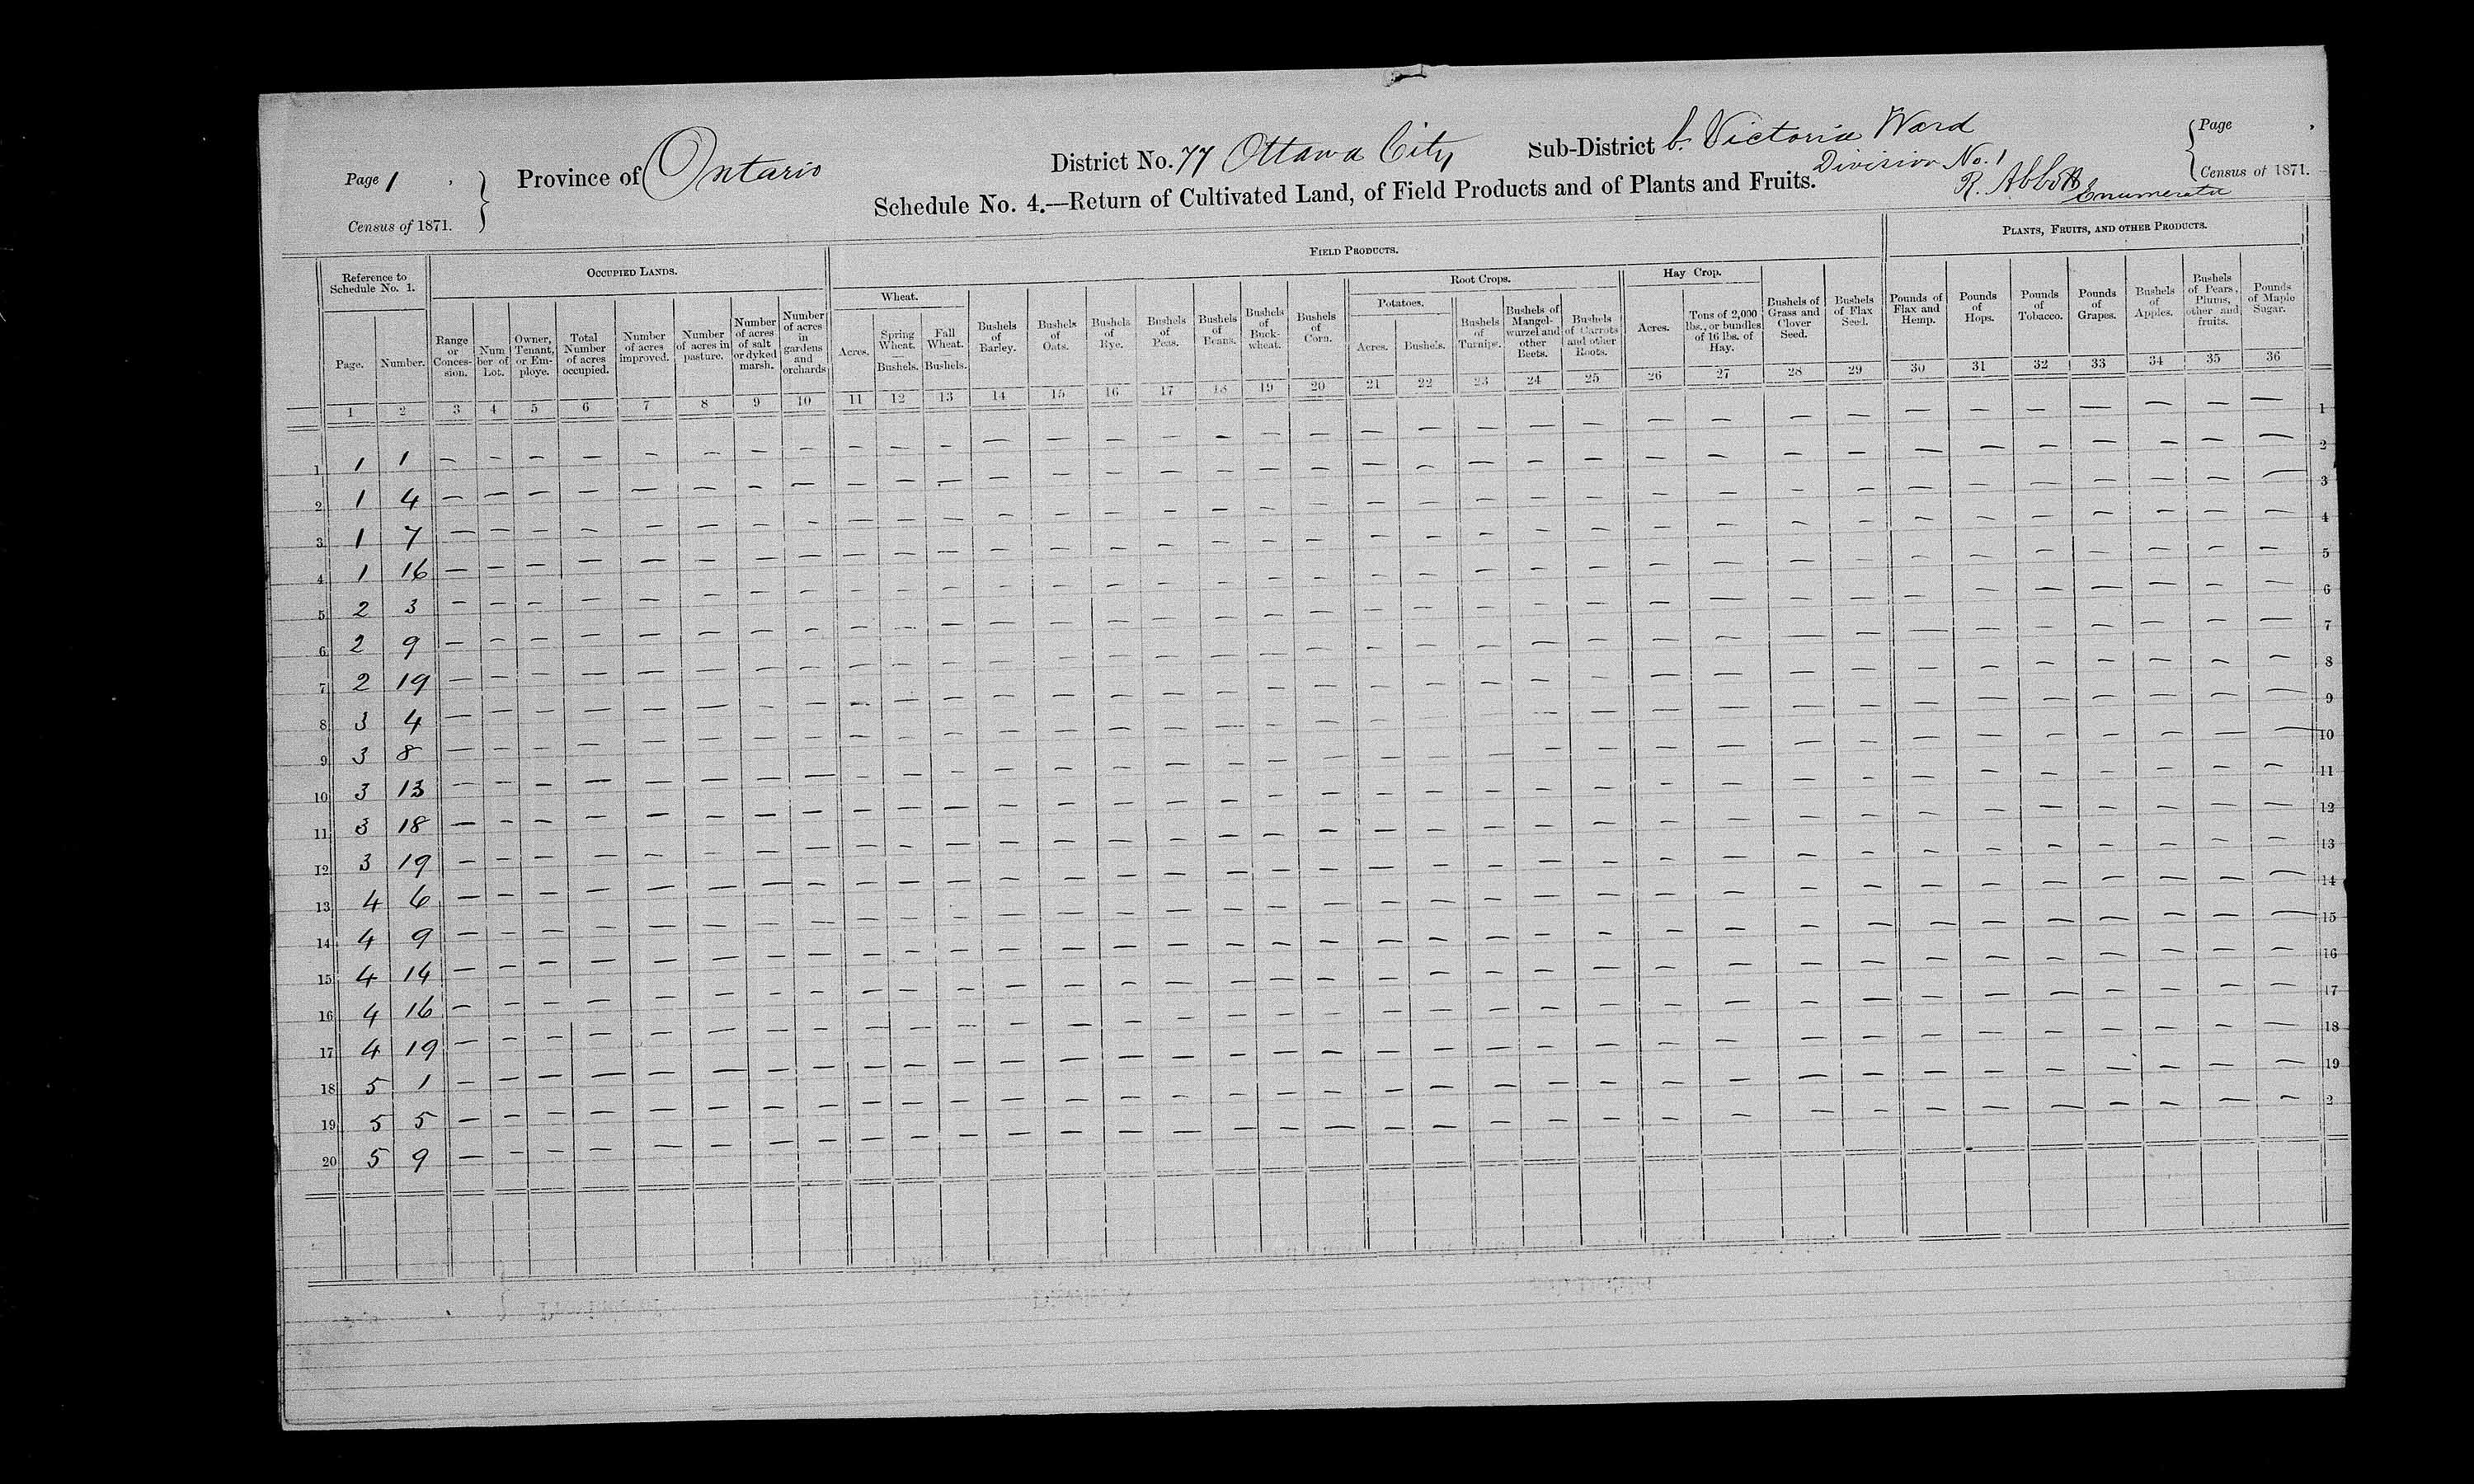 Page 1
Census of 1871.
Province of Ontario
District No. 77 Ottawa City
Sub-District b. Victoria Ward
Division No. 1
R. Abbott Enumerator
Page
Census of 1871.
Schedule No. 4.—Return of Cultivated Land, of Field Products and of Plants and Fruits.
Reference to Schedule No. 1.
OCCUPIED LANDS.
FIELD PRODUCTS.
PLANTS, FRUITS, AND OTHER PRODUCTS.
Wheat.
Root Crops.
Potatoes.
Hay Crop.
Page.
Number.
Range or Conces-sion.
Num ber of Lot.
Owner, Tenant, or Em-ploye.
Total Number of acres occupied.
Number of acres improved.
Number of acres in pasture.
Number of acres of salt or dyked marsh.
Number of acres in gardens and orchards
Acres.
Spring Wheat. — Bushels.
Fall Wheat. — Bushels.
Bushels of Barley.
Bushels of Oats.
Bushels of Rye.
Bushels of Peas.
Bushels of Beans.
Bushels of Buck-wheat.
Bushels of Corn.
Acres.
Bushels.
Bushels of Turnips.
Bushels of Mangel-wurzel and other Beets.
Bushels of Carrots and other Roots.
Acres.
Tons of 2,000 lbs., or bundles of 16 lbs. of Hay.
Bushels of Grass and Clover Seed.
Bushels of Flax Seed.
Pounds of Flax and Hemp.
Pounds of Hops.
Pounds of Tobacco.
Pounds of Grapes.
Bushels of Apples.
Bushels of Pears, Plums, other and fruits.
Pounds of Maple Sugar.
1 2 3 4 5 6 7 8 9 10 11 12 13 14 15 16 17 18 19 20 21 22 23 24 25 26 27 28 29 30 31 32 33 34 35 36
1 1 1 — — — — — — — — — — — — — — — — — — — — — — — — — — — — — — — — — — 1
2 1 4 — — — — — — — — — — — — — — — — — — — — — — — — — — — — — — — — — — 2
3 1 7 — — — — — — — — — — — — — — — — — — — — — — — — — — — — — — — — — — 3
4 1 16 — — — — — — — — — — — — — — — — — — — — — — — — — — — — — — — — — — 4
5 2 3 — — — — — — — — — — — — — — — — — — — — — — — — — — — — — — — — — — 5
6 2 9 — — — — — — — — — — — — — — — — — — — — — — — — — — — — — — — — — — 6
7 2 19 — — — — — — — — — — — — — — — — — — — — — — — — — — — — — — — — — — 7
8 3 4 — — — — — — — — — — — — — — — — — — — — — — — — — — — — — — — — — — 8
9 3 8 — — — — — — — — — — — — — — — — — — — — — — — — — — — — — — — — — — 9
10 3 13 — — — — — — — — — — — — — — — — — — — — — — — — — — — — — — — — — — 10
11 3 18 — — — — — — — — — — — — — — — — — — — — — — — — — — — — — — — — — — 11
12 3 19 — — — — — — — — — — — — — — — — — — — — — — — — — — — — — — — — — — 12
13 4 6 — — — — — — — — — — — — — — — — — — — — — — — — — — — — — — — — — — 13
14 4 9 — — — — — — — — — — — — — — — — — — — — — — — — — — — — — — — — — — 14
15 4 14 — — — — — — — — — — — — — — — — — — — — — — — — — — — — — — — — — — 15
16 4 16 — — — — — — — — — — — — — — — — — — — — — — — — — — — — — — — — — — 16
17 4 19 — — — — — — — — — — — — — — — — — — — — — — — — — — — — — — — — — — 17
18 5 1 — — — — — — — — — — — — — — — — — — — — — — — — — — — — — — — — — — 18
19 5 5 — — — — — — — — — — — — — — — — — — — — — — — — — — — — — — — — — — 19
20 5 9 — — — — — — — — — — — — — — — — — — — — — — — — — — — — — — — — — — 2